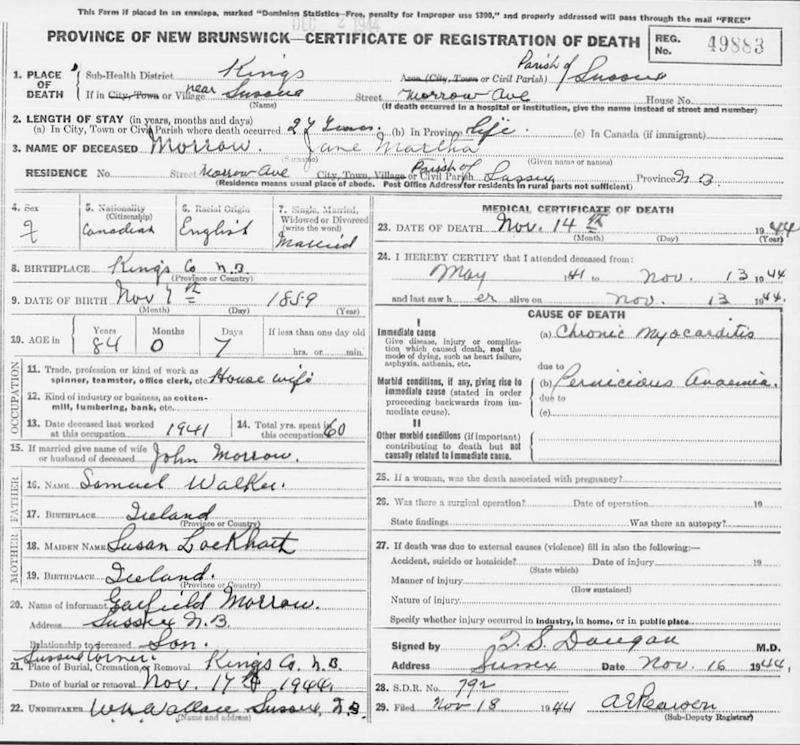 This Form if placed in an envelope, marked "Dominion Statistics—Free, penalty for improper use $300," and properly addressed will pass through the mail "FREE"
DEC 2 1944
PROVINCE OF NEW BRUNSWICK—CERTIFICATE OF REGISTRATION OF DEATH
REG. No. 49883
1. PLACE OF DEATH
Sub-Health District Kings Area (City, Town or Civil Parish) Parish of Sussex
If in City, Town or Village near Sussex Street Morrow Ave House No.
(Name) (If death occurred in a hospital or institution, give the name instead of street and number)
2. LENGTH OF STAY (in years, months and days)
(a) In City, Town or Civil Parish where death occurred 27 Years. (b) In Province life. (c) In Canada (if immigrant)
3. NAME OF DECEASED Morrow. Jane Martha
(Surname) (Given name or names)
RESIDENCE No. Street Morrow Ave City, Town, Village or Civil Parish Parish of Sussex Province N.B.
(Residence means usual place of abode. Post Office Address for residents in rural parts not sufficient)
4. Sex
F
5. Nationality (Citizenship)
Canadian
6. Racial Origin
English
7. Single, Married, Widowed or Divorced (write the word)
Married
8. BIRTHPLACE Kings Co N.B.
(Province or Country)
9. DATE OF BIRTH Nov 7th 1859
(Month) (Day) (Year)
10. AGE in
Years Months Days If less than one day old
84 0 7 hrs. or min.
OCCUPATION
11. Trade, profession or kind of work as spinner, teamster, office clerk, etc. House wife
12. Kind of industry or business, as cotton-mill, lumbering, bank, etc.
13. Date deceased last worked at this occupation 1941 14. Total yrs. spent in this occupation 60
15. If married give name of wife or husband of deceased John Morrow.
FATHER
16. NAME Samuel Walker.
17. BIRTHPLACE Ireland
(Province or Country)
MOTHER
18. MAIDEN NAME Susan Lockhart
19. BIRTHPLACE Ireland.
(Province or Country)
20. Name of informant Garfield Morrow.
Address Sussex N.B.
Relationship to deceased Son.
Sussex Corner.
21. Place of Burial, Cremation or Removal Kings Co. N.B.
Date of burial or removal Nov. 17th 1944.
22. UNDERTAKER W.H. Wallace Sussex, N.B.
(Name and address)
MEDICAL CERTIFICATE OF DEATH
23. DATE OF DEATH Nov. 14th 1944
(Month) (Day) (Year)
24. I HEREBY CERTIFY that I attended deceased from:
May 1941 to Nov. 13 1944
and last saw her alive on Nov. 13 1944.
CAUSE OF DEATH
I
Immediate cause
Give disease, injury or complication which caused death, not the mode of dying, such as heart failure, asphyxia, asthenia, etc.
(a) Chronic Myocarditis
due to
Morbid conditions, if any, giving rise to immediate cause (stated in order proceeding backwards from immediate cause).
(b) Pernicious Anaemia.
due to
(c)
II
Other morbid conditions (if important) contributing to death but not causally related to immediate cause.
25. If a woman, was the death associated with pregnancy?
26. Was there a surgical operation? Date of operation 19
State findings Was there an autopsy?
27. If death was due to external causes (violence) fill in also the following:—
Accident, suicide or homicide? Date of injury 19
(State which)
Manner of injury
(How sustained)
Nature of injury
Specify whether injury occurred in industry, in home, or in public place
Signed by M.D.
Address Sussex Date Nov. 16 1944.
28. S.D.R. No. 792
29. Filed Nov 18 1944
(Sub-Deputy Registrar)